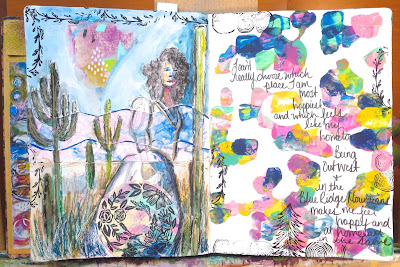 I can't
really choose which
place I am
most
happiest
and which feels
like my
hometown
Being
Out West
+
in the
Blue Ridge Mountains
makes me feel
happy and
at home